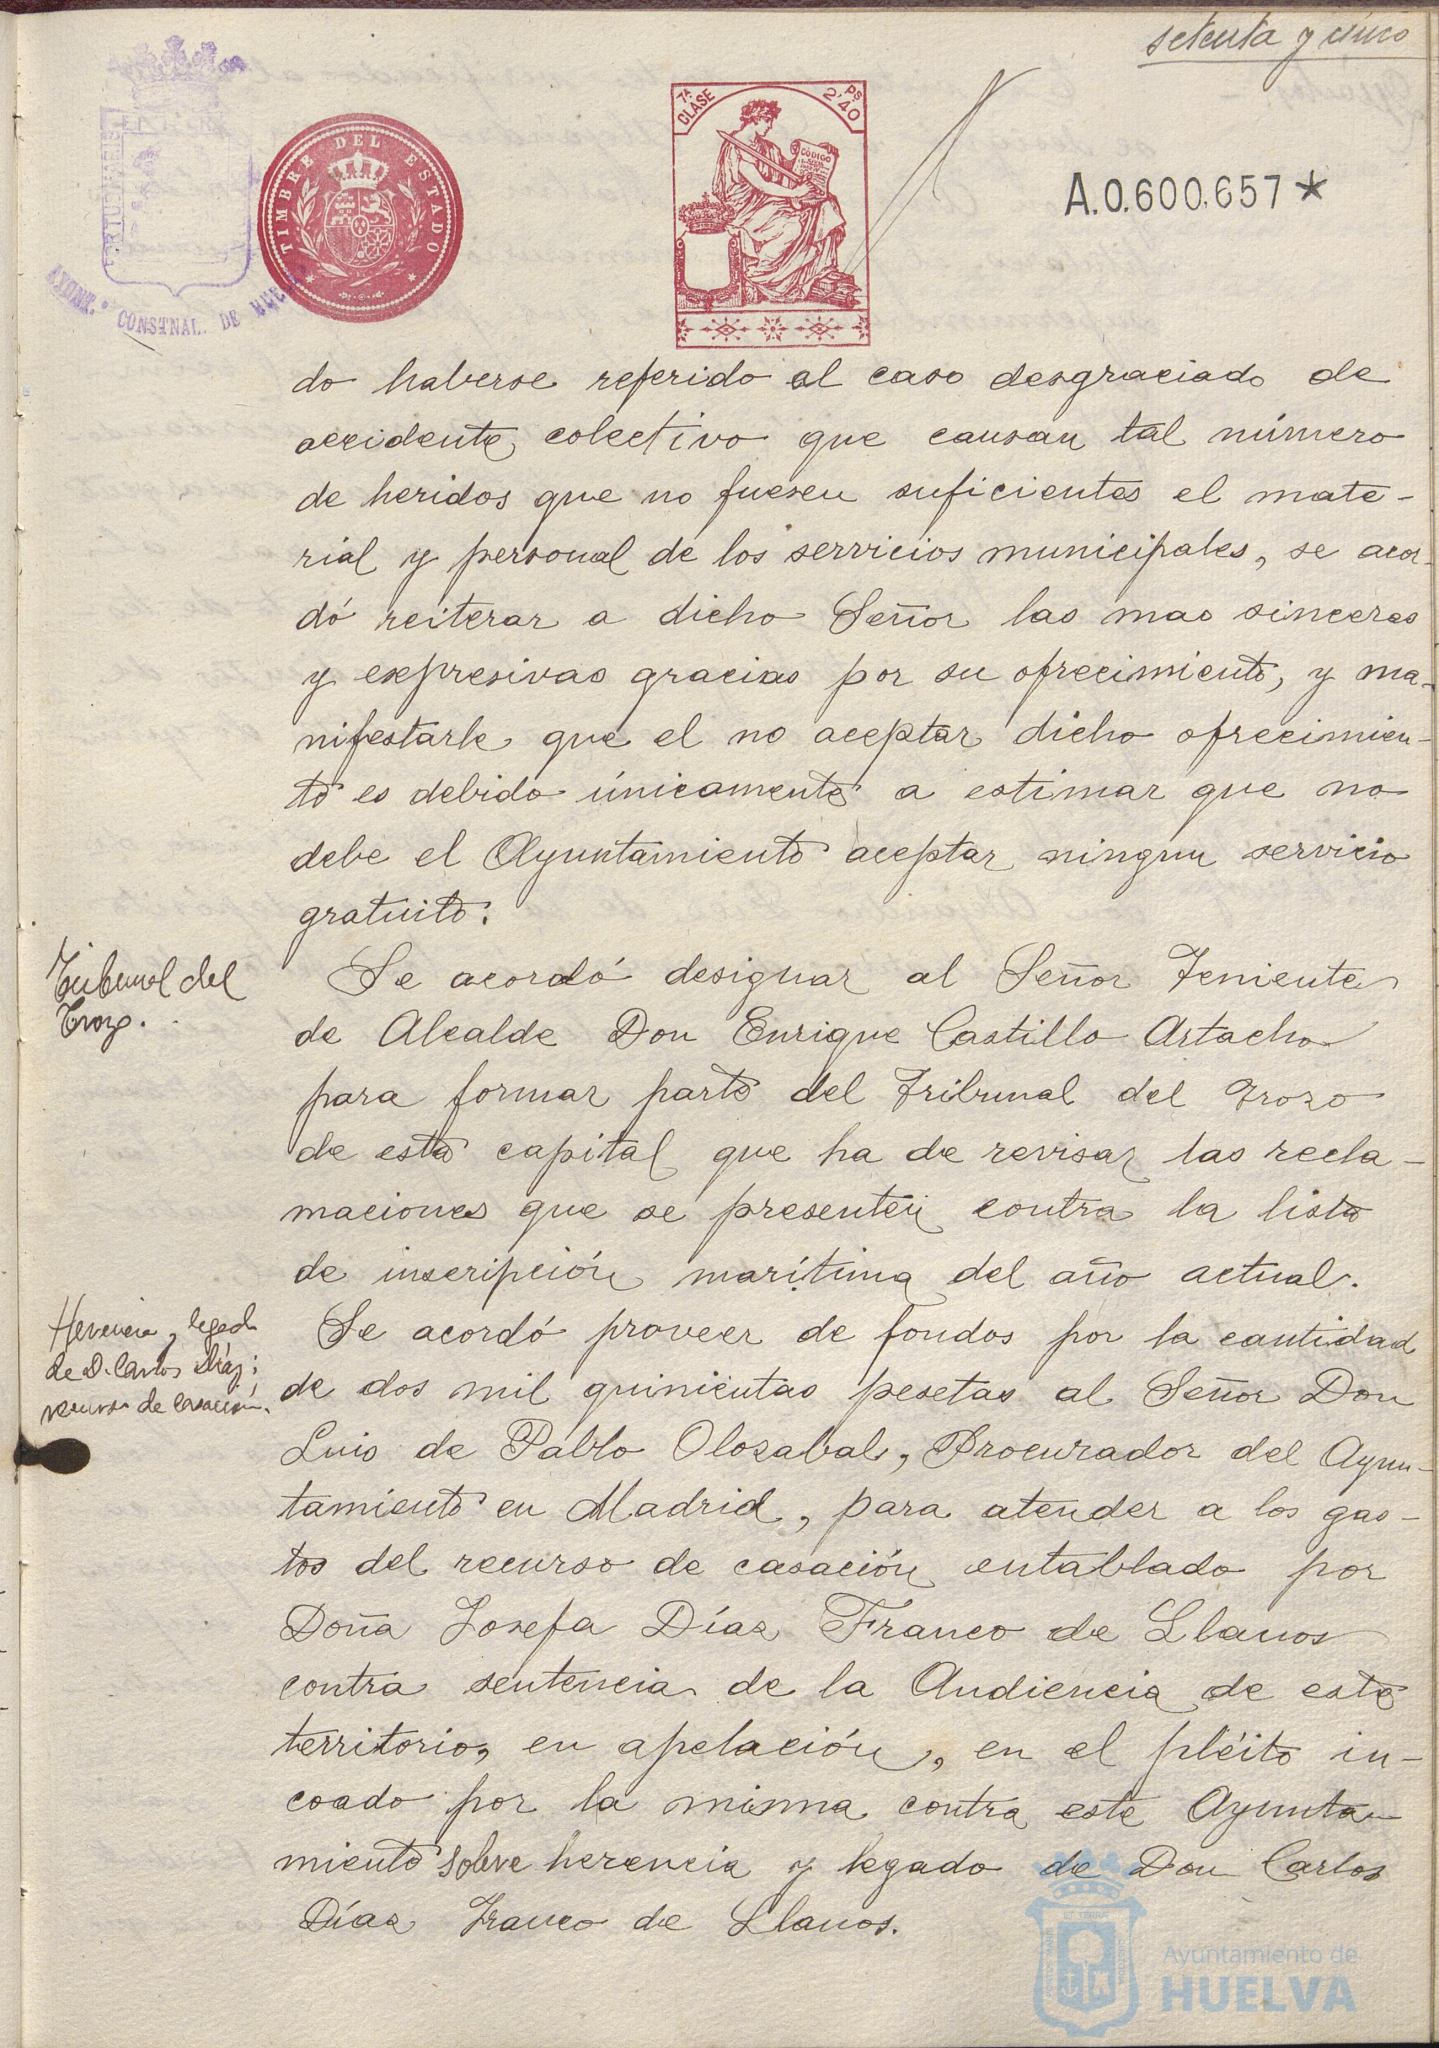 setenta y cinco
TIMBRE DEL ESTADO
7ª CLASE
PS 2'40
CÓDIGO
A.0.600.657*
AYUNT. CONSTNAL. DE HUE
do haberse referido al caso desgraciado de
accidente colectivo que causan tal número
de heridos que no fuesen suficientes el mate-
rial y personal de los servicios municipales, se acor-
dó reiterar a dicho Señor las mas sinceras
y expresivas gracias por su ofrecimiento, y ma-
nifestarle que el no aceptar dicho ofrecimien-
to es debido únicamente a estimar que no
debe el Ayuntamiento aceptar ningun servicio
gratuito.
Tribunal del
Trozo.
Se acordó designar al Señor Teniente
de Alcalde Don Enrique Castillo Artacho
para formar parte del Tribunal del Trozo
de esta capital que ha de revisar las recla-
maciones que se presenten contra la lista
de inscripción marítima del año actual.
Herencia y legado
de D. Carlos Díaz:
recurso de casación.
Se acordó proveer de fondos por la cantidad
de dos mil quinientas pesetas al Señor Don
Luis de Pablo Olozabal, Procurador del Ayun-
tamiento en Madrid, para atender a los gas-
tos del recurso de casación entablado por
Doña Josefa Díaz Franco de Llanos
contra sentencia de la Audiencia de este
territorio, en apelación, en el pléito in-
coado por la misma contra este Ayunta-
miento sobre herencia y legado de Don Carlos
Díaz Franco de Llanos.
Ayuntamiento de
HUELVA